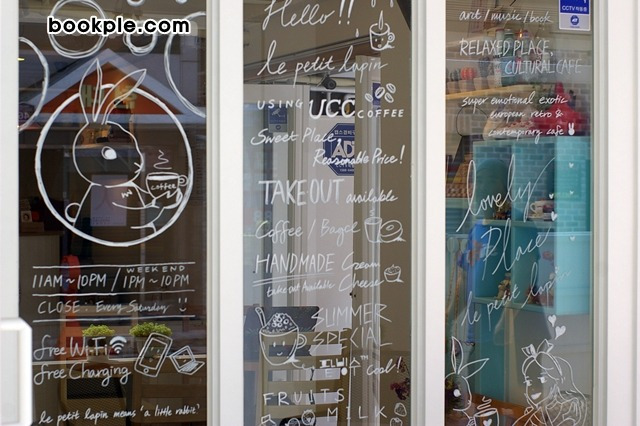 bookple.com
11AM~10PM / WEEKEND 1PM~10PM
CLOSE: Every Saturday
free WiFi
free Charging
le petit lapin means 'a little rabbit'
COFFEE
Hello!!
le petit lapin
USING UCC COFFEE
Sweet Place,
Reasonable Price!
ADT
TAKE OUT available
Coffee / Bagle
HANDMADE Cream
take out Available Cheese
SUMMER
SPECIAL
Cool!
FRUITS
MILK
CCTV 작동중
ADT
art / music / book
RELAXED PLACE,
CULTURAL CAFE
super emotional exotic
european retro &
contemporary cafe
lovely
Place
le petit lapin